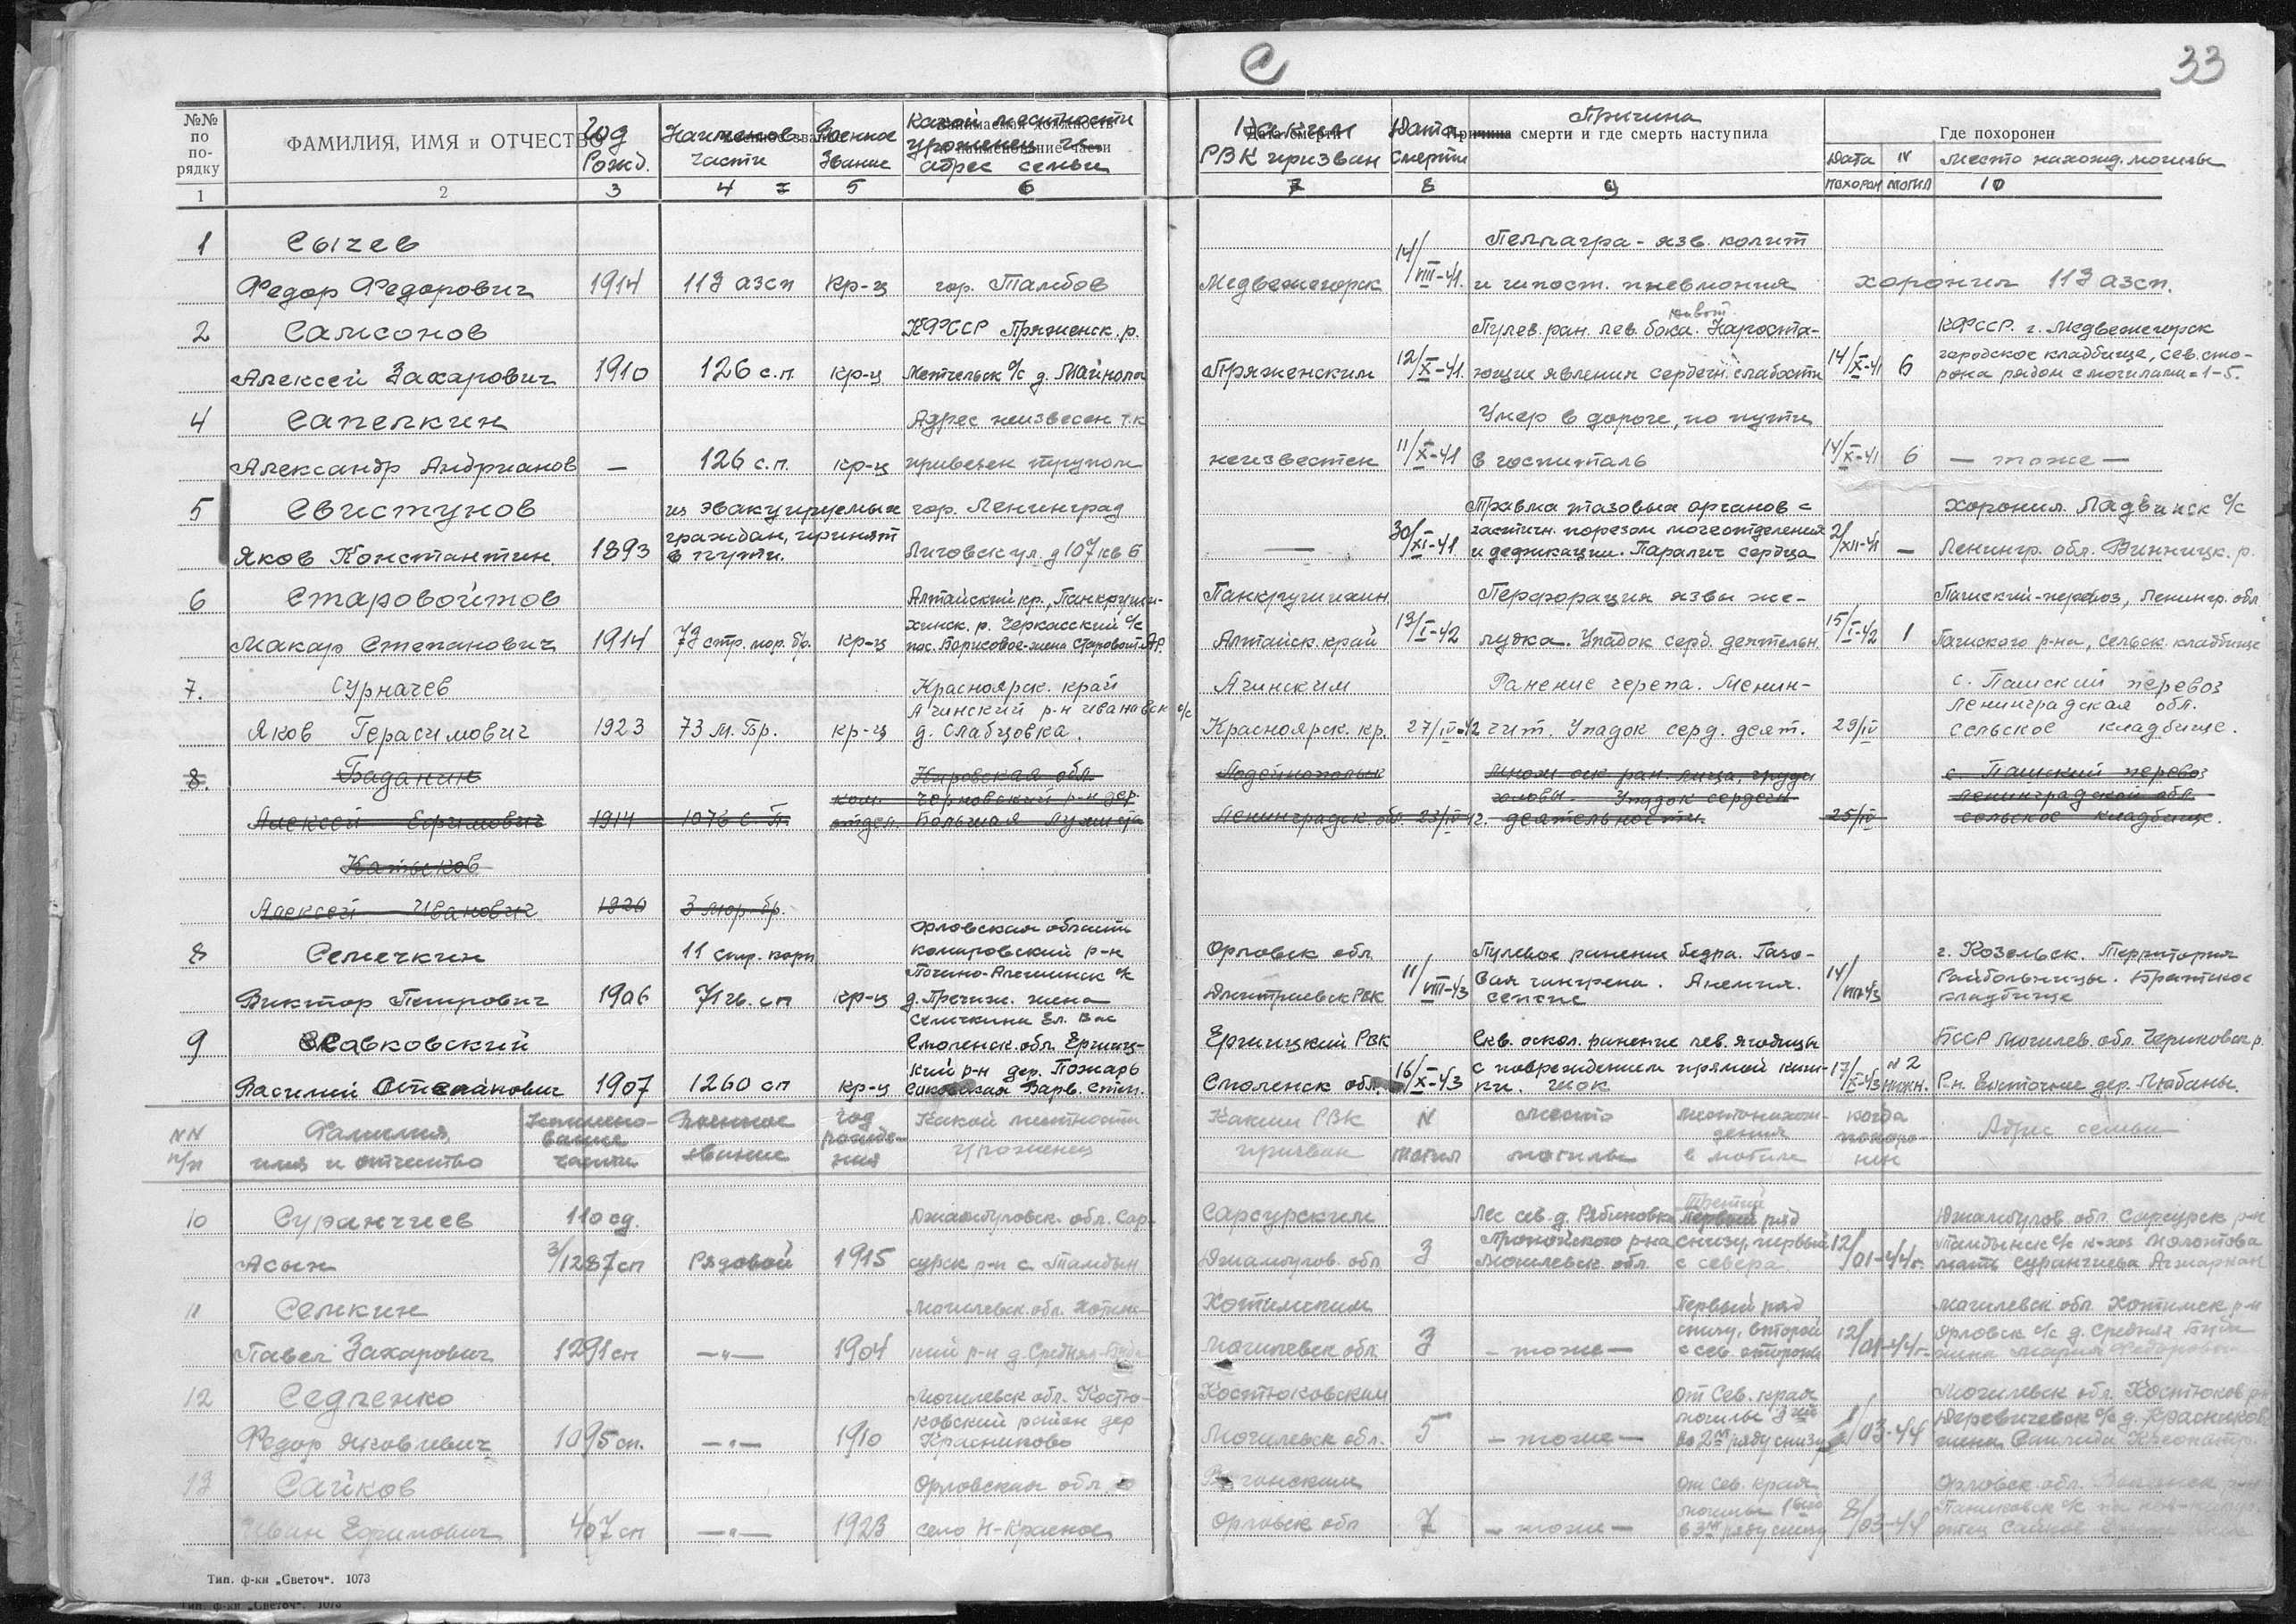 С
33
№№ по по-рядку
ФАМИЛИЯ, ИМЯ и ОТЧЕСТВО
Год Рожд.
Наименов. части
Военное Звание
Какой местности уроженец и адрес семьи
Каким РВК призван
Дата смерти
Причина смерти и где смерть наступила
Где похоронен
Дата похорон
N могил
Место нахожд. могилы
1 2 3 4 5 6 7 8 9 10
1 Сычев
Пеллагра - язв. колит
Федор Федорович 1914 113 азсп кр-ц гор. Тамбов
Медвежегорск 14/VIII-41. и гипост. пневмония
хоронил 113 азсп.
2 Самсонов
КФССР Пряженск. р.
Пулев. ран. лев. бока. Нароста-
живот
КФССР. г. Медвежегорск
Алексей Захарович 1910 126 с.п. кр-ц
с/с д.
Пряженским 12/X-41. ющие явления сердечн. слабости 14/X-41 6
городское кладбище, сев. сто-
рона рядом с могилами = 1-5.
4 Сапелкин
Адрес неизвесен т.к
Умер в дороге, по пути
Александр Андрианов — 126 с.п. кр-ц привезен трупом
неизвестен 11/X-41 в госпиталь 14/X-41 6 — тоже —
5 Свистунов
из эвакуируемых гор. Ленинград
Травма тазовых органов с
хоронил. Ладвинск с/с
граждан, принят
Яков Константин. 1893 в пути. Лиговск ул. д 107 кв 6
— 30/XI-41 частичн. порезом мочеотделения
и дефикации. Паралич сердца 2/XII-41 — Ленингр. обл. Винницк. р.
6 Старовойтов
Алтайский кр., Панкруши-
Панкрушихин
Перфорация язвы же-
Пашский-перевоз, Ленингр. обл
хинск. р. Черкасский с/с
Макар Степанович 1914 73 стр. мор. бр. кр-ц пос. Борисовое-жена
Алтайск. край 13/I-42 лудка. Упадок серд. деятельн. 15/I-42 1 Пашского р-на, сельск. кладбище
7. Сурначев
Красноярск. край
Ачинским
Ранение черепа. Менин-
с. Пашский перевоз
Ачинский р-н Ивановск с/с
Ленинградская обл.
Яков Герасимович 1923 73 м. Бр. кр-ц д. Слабцовка.
Красноярск. кр. 27/IV-42 гит. Упадок серд. деят. 29/IV сельское кладбище.
8. Баданин
Кировская обл.
Лодейнопольск
множ. оск ран. лица, груди
с. Пашский перевоз
ком. Черновский р-н дер.
головы. Упадок сердечн
Ленинградской обл.
Алексей Ефимович 1914 1076 с.п. отдел. Большая
Ленинградск. об. 23/IV 42. деятельности. 25/IV сельское кладбище.
Катысков
Алексей Иванович 1920 3 мор. бр.
8 Семечкин
11 стр. корп
Орловская область
комаровский р-н
Орловск обл.
Пулевое ранение бедра. Газо-
г. Козельск. Территория
Виктор Петрович 1906 71 гв. сп кр-ц
д. Пречист. жена
Семечкина Ел. Вас
Дмитриевск РВК 11/VIII-43 вая гангрена. Анемия.
сепсис 14/VIII-43 Райбольницы. Братское
кладбище
9 Савковский
Смоленск. обл. Ершиц-
Ершицкий РВК
Скв. оскол. ранение лев. ягодицы
БССР Могилев. обл. Чериковск р.
кий р-н дер. Пожарь
Василий Степанович 1907 1260 сп кр-ц Варв. Степ.
Смоленск обл. 16/X-43 с повреждением прямой киш-
ки. Шок 17/X-43 №2 нижн. Р-н. Восточнее дер. Любаны.
NN п/п
Фамилия, имя и отчество
Наимено-вание части
Военное звание
год рожде-ния
Какой местности уроженец
Каким РВК призван
N могил
место могилы
местонахож-дения в могиле
когда похоро-нен
Адрес семьи
10 Суранчиев 110 сд.
Джамбуловск. обл. Сар-
Сарсурским
Лес сев. д. Рябиновка
третий первый ряд
Джамбулов. обл. Сарсурск р-н
Асын 3/1287 сп Рядовой 1915 сурск р-н с. Тамбын
Джамбулов. обл 3
Пропойского р-на
Могилевск. обл.
снизу, первый
с севера 12/01-44г.
мать Суранчиева
11 Семкин
Могилевск. обл. Хотим-
Хотимским
Первый ряд
Могилевск обл. Хотимск р-н
Павел Захарович 1291 сп —"— 1904 кий р-н д. Средняя-Буда
Могилевск обл. 3 — тоже — снизу, второй
с сев. стороны 12/01-44г.
Орловск с/с д. Средняя Буда
жена Мария Федоровна
12 Седленко
Могилевск обл. Костю-
Костюковским
от Сев. края
Могилевск обл. Костюков р-н
ковский район дер
Федор Яковлевич 1095 сп. —"— 1910 Красниково
Могилевск обл. 5 — тоже — могилы 3ий
во 2м ряду снизу /03-44
с/с д. Красников
жена
13 Сайков
Орловская обл.
от Сев. края
Орловск. обл.
Иван Ефимович 407 сп —"— 1923 село Н-Красное
Орловск обл 7 — тоже — могилы 1ый
в 3м ряду снизу 8/03-44
отец Сайков
Тип. ф-ки „Светоч". 1073